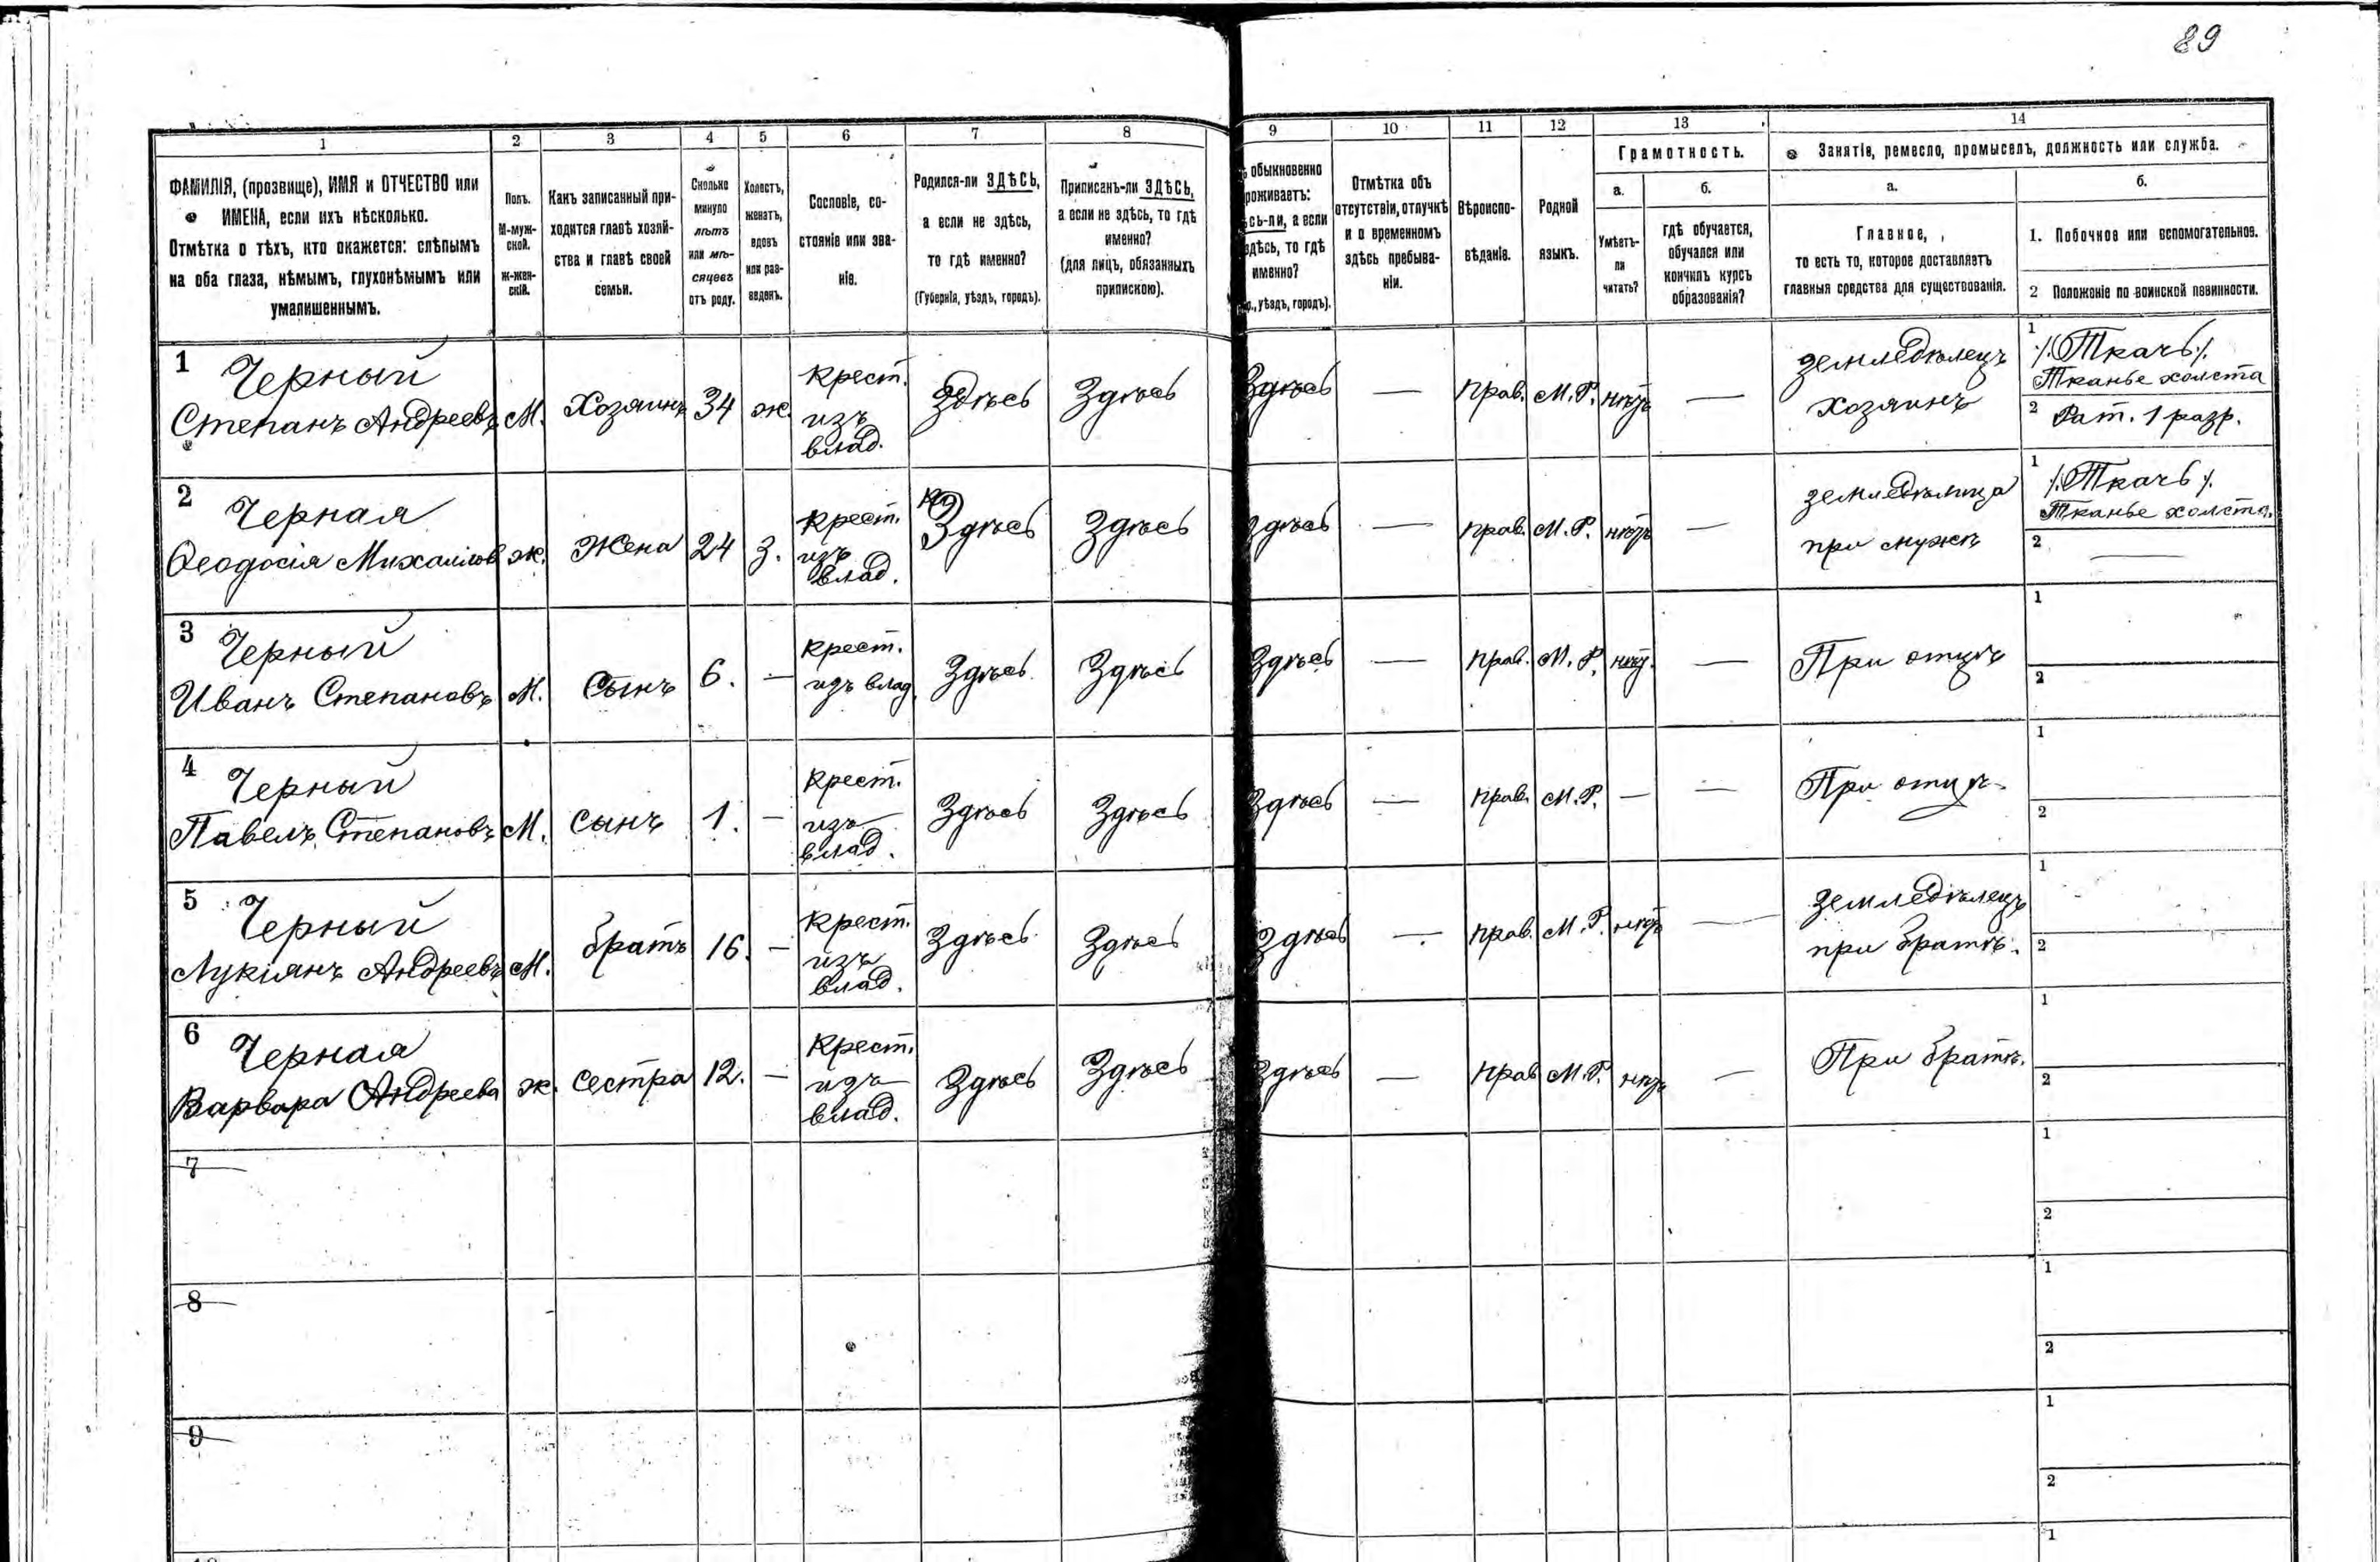 89
1 2 3 4 5 6 7 8 9 10 11 12 13 14
ФАМИЛІЯ, (прозвище), ИМЯ и ОТЧЕСТВО или
ИМЕНА, если ихъ нѣсколько.
Отмѣтка о тѣхъ, кто окажется: слѣпымъ
на оба глаза, нѣмымъ, глухонѣмымъ или
умалишеннымъ.
Полъ.
М-муж-
ской.
ж-жен-
скій.
Какъ записанный при-
ходится главѣ хозяй-
ства и главѣ своей
семьи.
Сколько
минуло
лѣтъ
или мѣ-
сяцевъ
отъ роду.
Холостъ,
женатъ,
вдовъ
или раз-
веденъ.
Сословіе, со-
стояніе или зва-
ніе.
Родился-ли ЗДѢСЬ,
а если не здѣсь,
то гдѣ именно?
(Губернія, уѣздъ, городъ).
Приписанъ-ли ЗДѢСЬ,
а если не здѣсь, то гдѣ
именно?
(для лицъ, обязанныхъ
припискою).
обыкновенно
роживаетъ:
сь-ли, а если
здѣсь, то гдѣ
именно?
уѣздъ, городъ).
Отмѣтка объ
отсутствіи, отлучкѣ
и о временномъ
здѣсь пребыва-
ніи.
Вѣроиспо-
вѣданіе.
Родной
языкъ.
Грамотность.
а.
Умѣетъ-
ли
читать?
б.
гдѣ обучается,
обучался или
кончилъ курсъ
образованія?
Занятіе, ремесло, промыселъ, должность или служба.
а.
Главное,
то есть то, которое доставляетъ
главныя средства для существованія.
б.
1. Побочное или вспомогательное.
2 Положеніе по воинской повинности.
1 Черный
Степанъ Андреевъ М. Хозяинъ 34 ж. Крест.
изъ
влад. Здѣсь Здѣсь Здѣсь — Прав. М.Р. нѣтъ — земледѣлецъ
хозяинъ
1 /.Ткачъ/.
Тканье холста
2 Рат. 1 разр.
2 Черная
Ѳеодосія Михаилов ж. Жена 24 З. Крест.
изъ
влад. Здѣсь Здѣсь Здѣсь — Прав. М.Р. нѣтъ — земледѣлица
при мужѣ
1 /.Ткачъ/.
Тканье холста.
2 —
3 Черный
Иванъ Степановъ М. Сынъ 6. — Крест.
изъ влад. Здѣсь Здѣсь Здѣсь — Прав. М.Р. нѣт. — При отцѣ
1
2
4 Черный
Павелъ Степановъ М. Сынъ 1. — Крест.
изъ
влад. Здѣсь Здѣсь Здѣсь — Прав. М.Р. — — При отцѣ
1
2
5 Черный
Лукіянъ Андреевъ М. братъ 16. — Крест.
изъ
влад. Здѣсь Здѣсь Здѣсь — Прав. М.Р. нѣтъ — Земледѣлецъ
при братѣ.
1
2
6 Черная
Варвара Андреева ж. Сестра 12. — Крест.
изъ
влад. Здѣсь Здѣсь Здѣсь — Прав М.Р. нѣтъ — При братѣ.
1
2
7
1
2
8
1
2
9
1
2
1